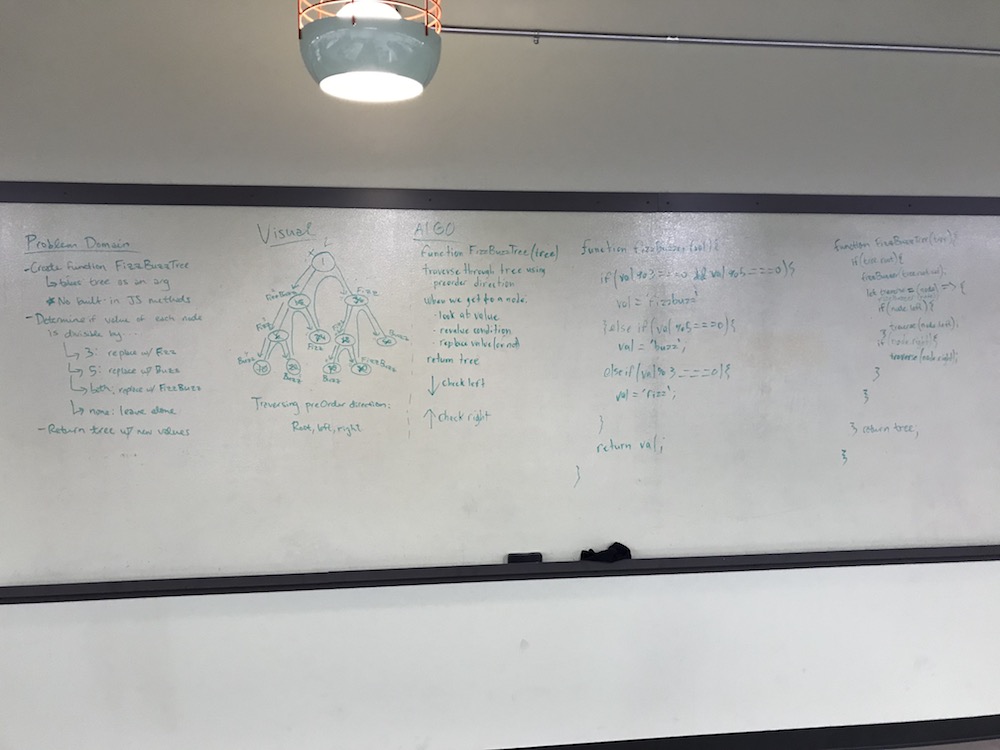 Problem Domain
- Create function FizzBuzzTree
tree as an arg
* No built-in JS methods
- Determine if value of each node
is divisible by...
3: replace w/ Fizz
5: replace w/ Buzz
both: replace w/ FizzBuzz
none: leave alone
- Return tree w/ new values
...
Visual
FizzBuzz
Fizz
Fizz
Fizz
Buzz
Buzz
Buzz
Buzz
FizzBuzz
Traversing preOrder direction:
Root, left, right
AlGO
function FizzBuzzTree(tree)
traverse through tree using
preorder direction
when we get to a node:
- look at value
- value condition
- replace value (or not)
return tree
↓ check left
↑ check right
function FizzBuzzer(val){
if(val%3===0 && val%5===0){
val = 'Fizzbuzz'
}else if(val%5===0){
val = 'buzz';
else if(val%3===0){
val = 'Fizz';
}
return val;
}
function FizzBuzzTree(tree){
if(tree.root){
fizzBuzzer(tree.root.val);
let traverse = (node) => {
if(node.left){
traverse(node.left);
}
if(node.right){
traverse(node.right);
}
}
} return tree;
}